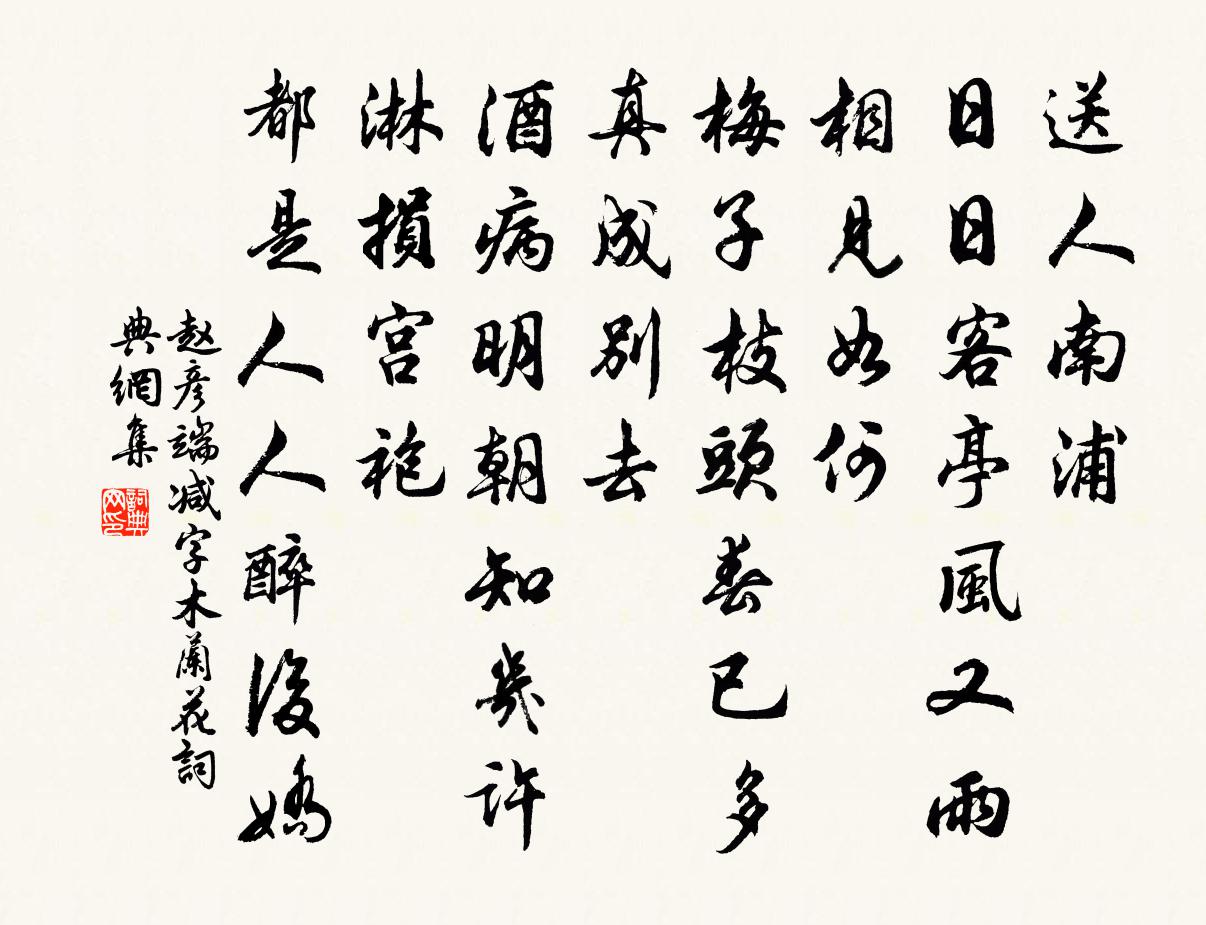 送人南浦
日日客亭風又雨
相見如何
梅子枝頭春已多
真成別去
酒病明朝知幾許
淋損宮袍
都是人人醉後嬌
赵彦端减字木蘭花詞
典網集
詞典
网印